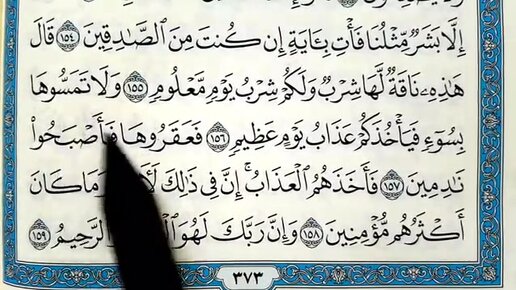 إِلَّا بَشَرٌ مِّثْلُنَا فَأْتِ بِـَٔايَةٍ إِن كُنتَ مِنَ ٱلصَّٰدِقِينَ ١٥٤ قَالَ
هَٰذِهِۦ نَاقَةٌ لَّهَا شِرْبٌ وَلَكُمْ شِرْبُ يَوْمٍ مَّعْلُومٍ ١٥٥ وَلَا تَمَسُّوهَا
بِسُوٓءٍ فَيَأْخُذَكُمْ عَذَابُ يَوْمٍ عَظِيمٍ ١٥٦ فَعَقَرُوهَا فَأَصْبَحُوا۟
نَٰدِمِينَ ١٥٧ فَأَخَذَهُمُ ٱلْعَذَابُ ۗ إِنَّ فِى ذَٰلِكَ وَمَا كَانَ
أَكْثَرُهُم مُّؤْمِنِينَ ١٥٨ وَإِنَّ رَبَّكَ لَهُوَ ٱلرَّحِيمُ ١٥٩
٣٧٣